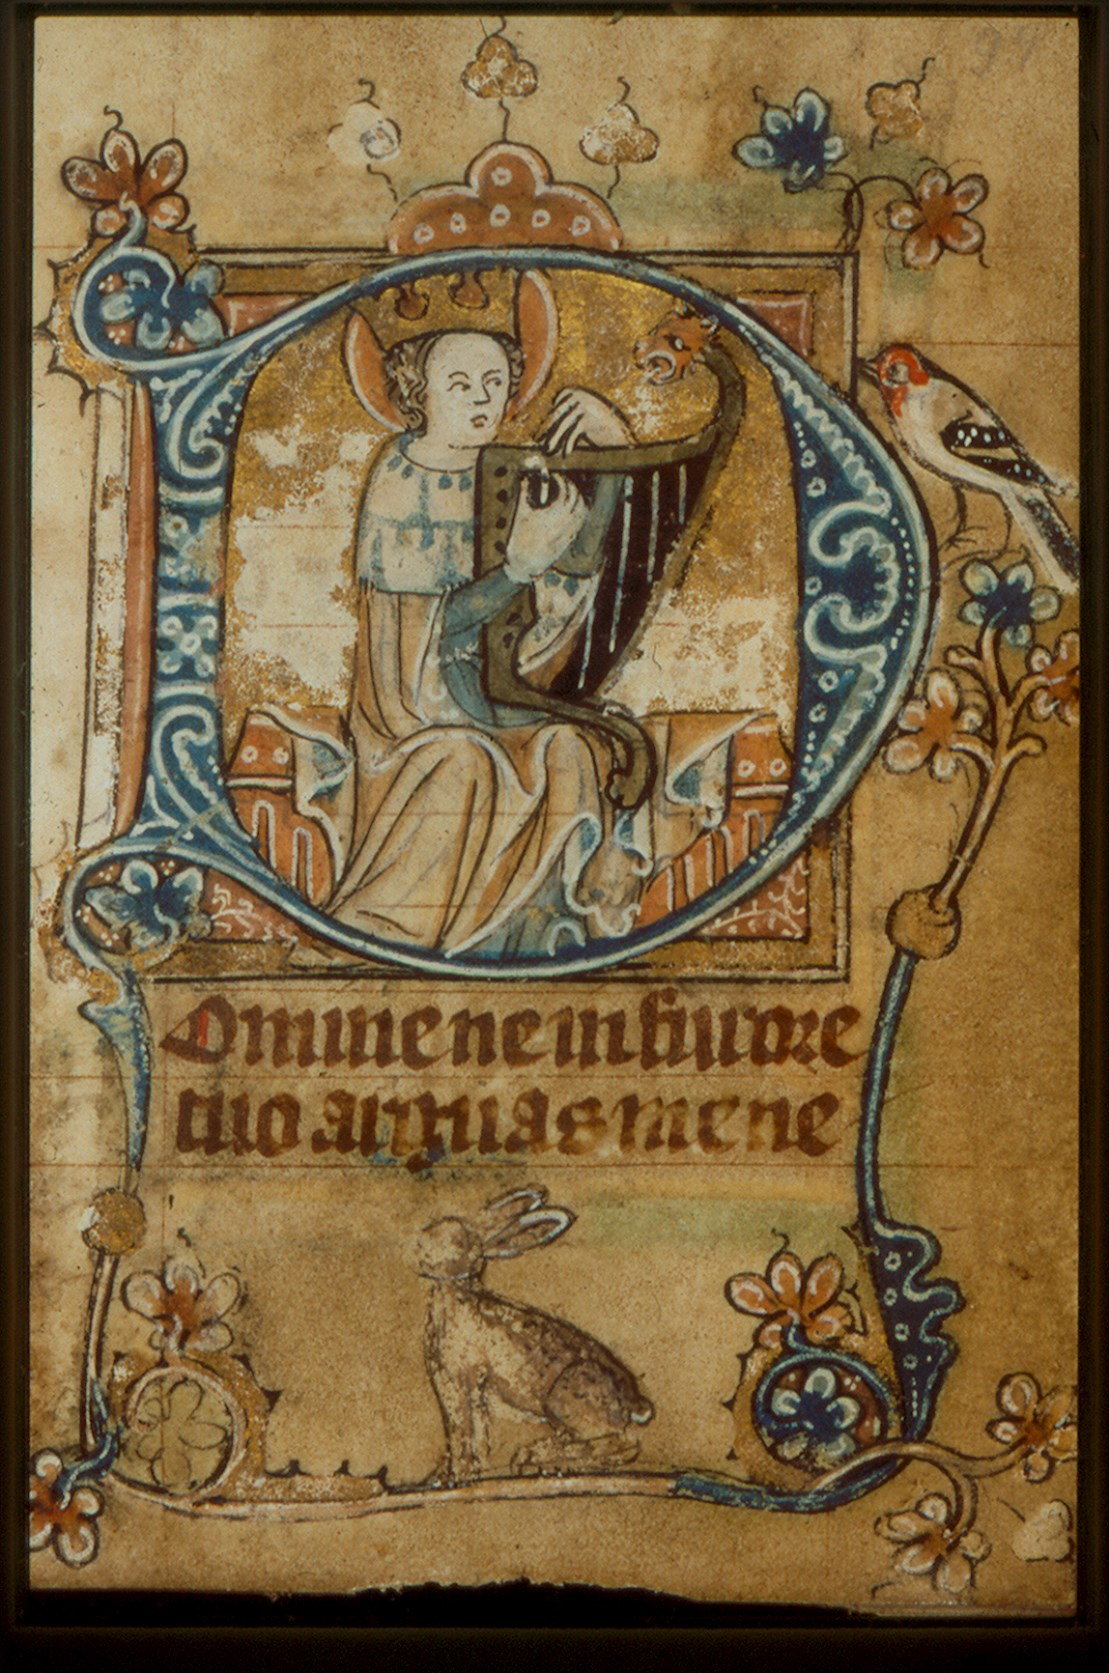 Domine ne in furore
tuo arguas me ne